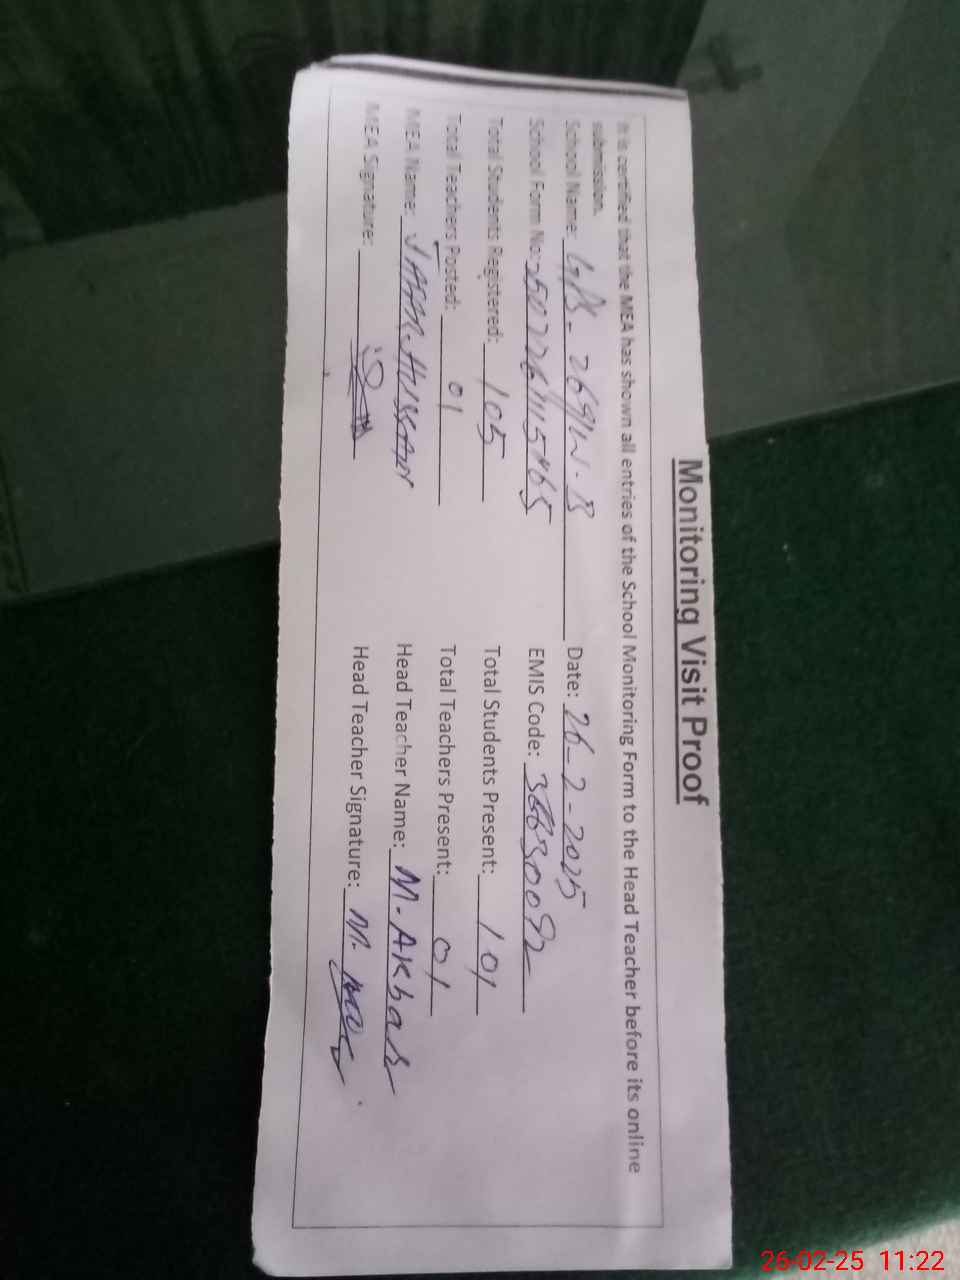 Monitoring Visit Proof
It is certified that the MEA has shown all entries of the School Monitoring Form to the Head Teacher before its online
submission.
School Name: 269/W.B Date: 26-2-2025
School Form No: EMIS Code:
Total Students Registered: 105 Total Students Present: 101
Total Teachers Posted: 01 Total Teachers Present: 01
MEA Name: Head Teacher Name: M. Akbar
MEA Signature: Head Teacher Signature:
26-02-25 11:22